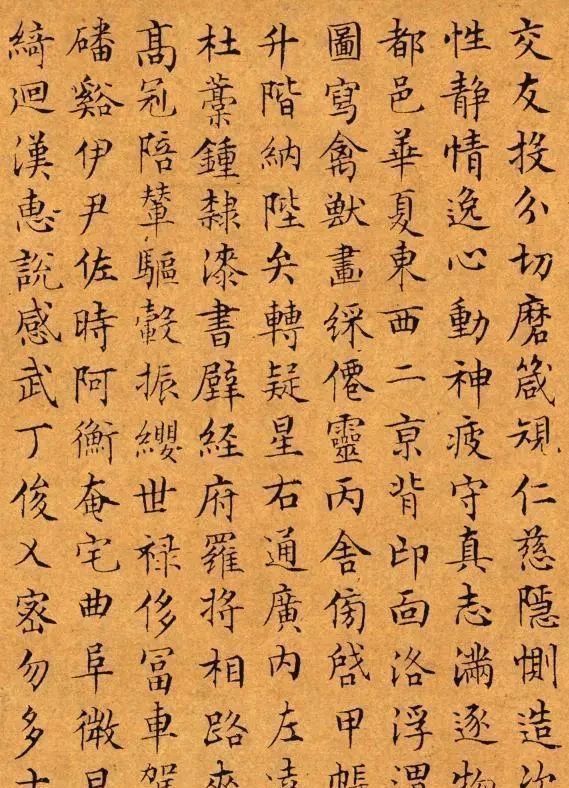 交友投分切磨箴規仁慈隱惻造次
性靜情逸心動神疲守真志滿逐物
都邑華夏東西二京背邙面洛浮渭
圖寫禽獸畫綵僊靈丙舍傍啓甲帳
升階納陛弁轉疑星右通廣內左達
杜藁鍾隸漆書壁經府羅將相路夾
髙冠陪輦驅轂振纓世祿侈冨車駕
磻谿伊尹佐時阿衡奄宅曲阜微旦
綺迴漢惠說感武丁俊乂密勿多士